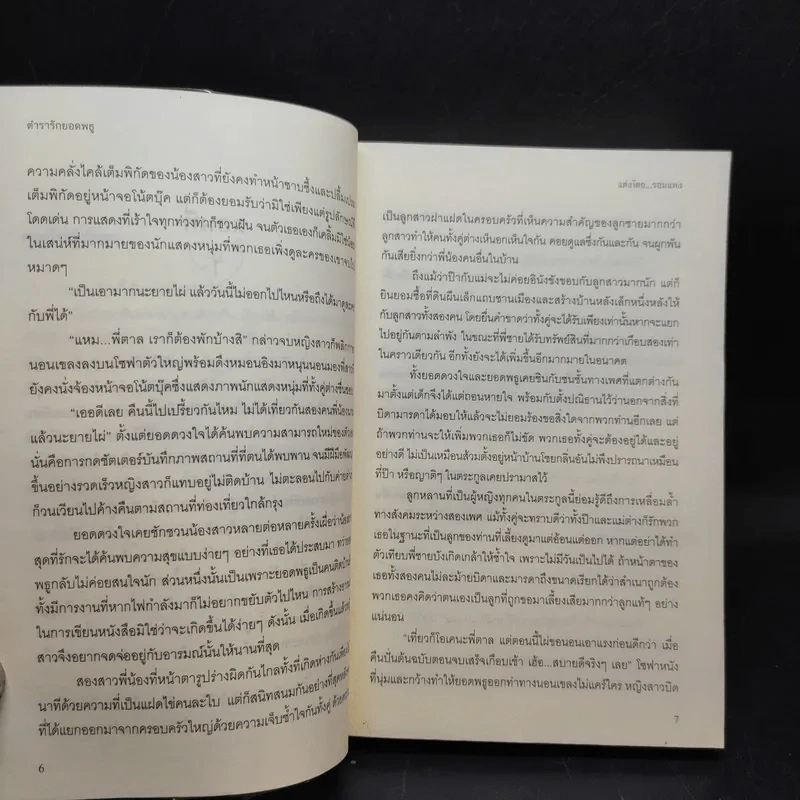 ตำรารักยอดพธู
ความคลั่งไคล้เต็มพิกัดของน้องสาวที่ยังคงทำหน้าซาบซึ้งและปลื้ม
เต็มพิกัดอยู่หน้าจอโน้ตบุ๊ค แต่ก็ต้องยอมรับว่ามิใช่เพียงแต่รูปลักษณ์
โดดเด่น การแสดงที่เร้าใจทุกท่วงท่าก็ชวนฝัน จนตัวเธอเองก็เคลิ้มมิใช่
ในเสน่ห์ที่มากมายของนักแสดงหนุ่มที่พวกเธอเพิ่งดูละครของเขาจบ
หมาดๆ
"เป็นเอามากนะยายไผ่ แล้ววันนี้ไม่ออกไปไหนหรือถึงได้มาดู
กับพี่ได้"
"แหม...พี่ตาล เราก็ต้องพักบ้างสิ" กล่าวจบหญิงสาวก็พลิก
นอนเขลงลงบนโซฟาตัวใหญ่พร้อมดึงหมอนอิงมาหนุนนอนมองพี่สาว
ยังคงนั่งจ้องหน้าจอโน้ตบุ๊คซึ่งแสดงภาพนักแสดงหนุ่มที่ทั้งคู่ต่างชื่น
"เออดีเลย คืนนี้ไปเปรี้ยวกันไหม ไม่ได้เที่ยวกันสองคนพี่น้อง
แล้วนะยายไผ่" ตั้งแต่ยอดดวงใจได้ค้นพบความสามารถใหม่ของตัว
นั่นคือการกดชัตเตอร์บันทึกภาพสถานที่ที่ตนได้พบพาน จนมีฝีมือ
ขึ้นอย่างรวดเร็วหญิงสาวก็แทบอยู่ไม่ติดบ้าน ไม่ตะลอนไปกับค่าย
ก็วนเวียนไปค้างคืนตามสถานที่ท่องเที่ยวใกล้กรุง
ยอดดวงใจเคยชักชวนน้องสาวหลายต่อหลายครั้งเผื่อว่าน้อง
สุดที่รักจะได้ค้นพบความสุขแบบง่ายๆ อย่างที่เธอได้ประสบมา
พธูกลับไม่ค่อยสนใจนัก ส่วนหนึ่งนั้นเป็นเพราะยอดพธูเป็นคนติดบ้าน
ทั้งมีการงานที่หากไฟกำลังมาก็ไม่อยากขยับตัวไปไหน การสร้าง
ในการเขียนหนังสือมิใช่ว่าจะเกิดขึ้นได้ง่ายๆ ดังนั้น เมื่อเกิดขึ้นแล้ว
สาวจึงอยากจดจ่ออยู่กับอารมณ์นั้นให้นานที่สุด
สองสาวพี่น้องที่หน้าตารูปร่างผิดกันไกลทั้งที่เกิดห่างกันเพียง
นาทีด้วยความที่เป็นแฝดไข่คนละใบ แต่ก็สนิทสนมกันอย่างที่สุด
ที่ได้แยกออกมาจากครอบครัวใหญ่ด้วยความเจ็บช้ำใจกันทั้งคู่
6
แต่งโดย...รอมแพง
เป็นลูกสาวฝาแฝดในครอบครัวที่เห็นความสำคัญของลูกชายมากกว่า
ลูกสาวทำให้คนทั้งคู่ต่างเห็นอกเห็นใจกัน คอยดูแลซึ่งกันและกัน จนผูกพัน
กันเสียยิ่งกว่าพี่น้องคนอื่นในบ้าน
ถึงแม้ว่าป๊ากับแม่จะไม่ค่อยอินังขังขอบกับลูกสาวมากนัก แต่ก็
ยินยอมซื้อที่ดินผืนเล็กแถบชานเมืองและสร้างบ้านหลังเล็กหนึ่งหลังให้
กับลูกสาวทั้งสองคน โดยยื่นคำขาดว่าทั้งคู่จะได้รับเพียงเท่านั้นหากจะแยก
ไปอยู่กันตามลำพัง ในขณะที่พี่ชายได้รับทรัพย์สินที่มากกว่าเกือบสองเท่า
ในคราวเดียวกัน อีกทั้งยังจะได้เพิ่มขึ้นอีกมากมายในอนาคต
ทั้งยอดดวงใจและยอดพธูเคยชินกับชนชั้นทางเพศที่แตกต่างกัน
มาตั้งแต่เด็กจึงได้แต่ถอนหายใจ พร้อมกับตั้งปณิธานไว้ว่านอกจากสิ่งที่
บิดามารดาได้มอบให้แล้วจะไม่ยอมร้องขอสิ่งใดจากพวกท่านอีกเลย แต่
ถ้าพวกท่านจะให้เพิ่มพวกเธอก็ไม่ขัด พวกเธอทั้งคู่จะต้องอยู่ได้และอยู่
อย่างดี ไม่เป็นเหมือนส้วมตั้งอยู่หน้าบ้านโชยกลิ่นอันไม่พึงปรารถนาเหมือน
ที่ป๊า หรือญาติๆ ในตระกูลเคยปรามาสไว้
ลูกหลานที่เป็นผู้หญิงทุกคนในตระกูลนี้ย่อมรู้ดีถึงการเหลื่อมล้ำ
ทางสังคมระหว่างสองเพศ แม้ทั้งคู่จะทราบดีว่าทั้งป๊าและแม่ต่างก็รักพวก
เธอในฐานะที่เป็นลูกของท่านที่เลี้ยงดูมาแต่อ้อนแต่ออก หากแต่อย่าได้ทำ
ตัวเทียบพี่ชายบังเกิดเกล้าให้ช้ำใจ เพราะไม่มีวันเป็นไปได้ ถ้าหน้าตาของ
เธอทั้งสองคนไม่ละม้ายบิดาและมารดาถึงขนาดเรียกได้ว่าสำเนาถูกต้อง
พวกเธอคงคิดว่าตนเองเป็นลูกที่ถูกขอมาเลี้ยงเสียมากกว่าลูกแท้ๆ อย่าง
แน่นอน
"เที่ยวก็โอเคนะพี่ตาล แต่ตอนนี้ไผ่ขอนอนเอาแรงก่อนดีกว่า เมื่อ
คืนปั่นต้นฉบับตอนจบเสร็จเกือบเช้า เฮ้อ...สบายดีจริงๆ เลย" โซฟาหนัง
ที่นุ่มและกว้างทำให้ยอดพธูออกท่าทางนอนเขลงไม่แคร์ใคร หญิงสาวบิด
7